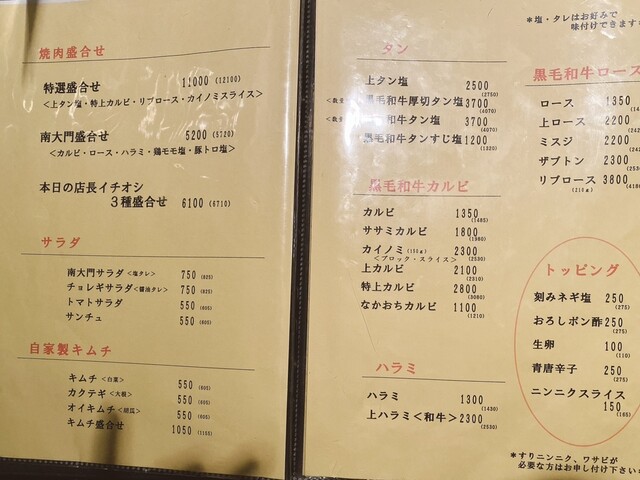 焼肉盛合せ
特選盛合せ 11000 (12100)
<上タン塩・特上カルビ・リブロース・カイノミスライス>
南大門盛合せ 5200 (5720)
<カルビ・ロース・ハラミ・鶏モモ塩・豚トロ塩>
本日の店長イチオシ
3種盛合せ 6100 (6710)
サラダ
南大門サラダ<塩タレ> 750 (825)
チョレギサラダ<醤油タレ> 750 (825)
トマトサラダ 550 (605)
サンチュ 550 (605)
自家製キムチ
キムチ<白菜> 550 (605)
カクテギ<大根> 550 (605)
オイキムチ<胡瓜> 550 (605)
キムチ盛合せ 1050 (1155)
タン
上タン塩 2500 (2750)
<数量 黒毛和牛厚切タン塩 3700 (4070)
<数量 黒毛和牛タン塩 3700 (4070)
黒毛和牛タンすじ塩 1200 (1320)
黒毛和牛カルビ
カルビ 1350 (1485)
ササミカルビ 1800 (1980)
カイノミ(150g) 2300 (2530)
<ブロック・スライス>
上カルビ 2100 (2310)
特上カルビ 2800 (3080)
なかおちカルビ 1100 (1210)
ハラミ
ハラミ 1300 (1430)
上ハラミ<和牛> 2300 (2530)
*塩・タレはお好みで
味付けできます
黒毛和牛ロース
ロース 1350
上ロース 2200
ミスジ 2200
ザブトン 2300
リブロース 3800
(210g)
トッピング
刻みネギ塩 250 (275)
おろしポン酢 250 (275)
生卵 100 (110)
青唐辛子 250 (275)
ニンニクスライス
150 (165)
*すりニンニク、ワサビが
必要な方はお申し付け下さい